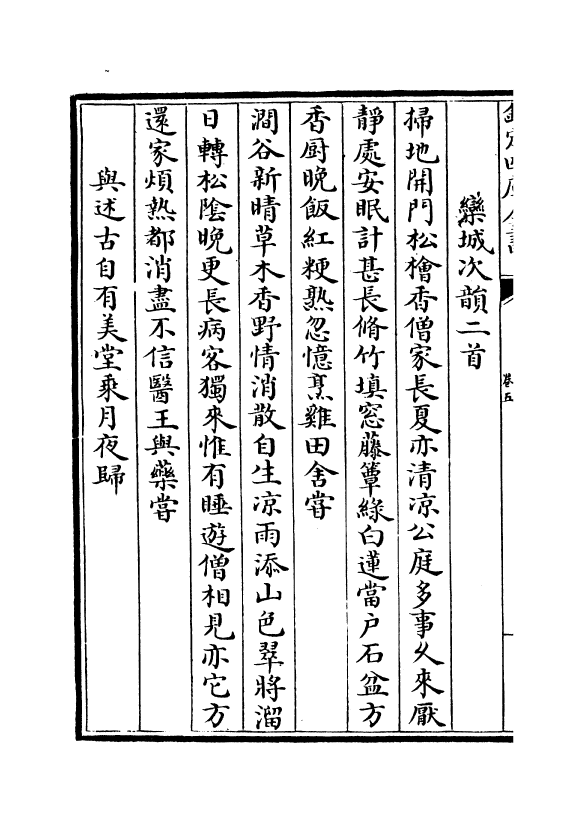 欽定四庫全書
卷五
欒城次韻二首
掃地開門松檜香僧家長夏亦清凉公庭多事久來厭
靜處安眠計甚長脩竹填窓藤簟緑白蓮當户石盆方
香厨晚飯紅粳熟忽憶烹雞田舍嘗
澗谷新晴草木香野情消散自生凉雨添山色翠將溜
日轉松隂晚更長病客獨來惟有睡遊僧相見亦它方
還家煩熱都消盡不信醫王與藥嘗
與述古自有美堂乘月夜歸